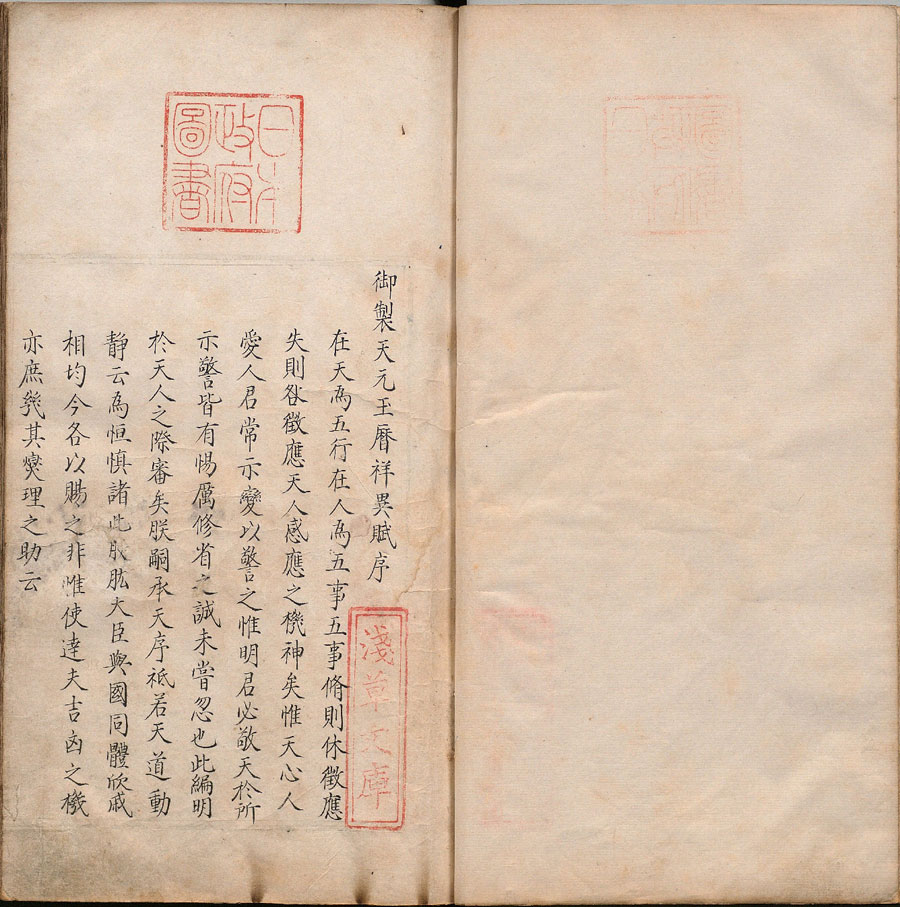 日本
政府
圖書
御製天元玉曆祥異賦序
在天為五行在人為五事五事脩則休徵應
失則咎徵應天人感應之機神矣惟天心人
愛人君常示變以警之惟明君必敬天於所
示警皆有惕厲修省之誠未嘗忽也此編明
於天人之際審矣朕嗣承天序祗若天道動
静云為恒慎諸此股肱大臣與國同體欣戚
相均今各以賜之非惟使達夫吉凶之機
亦庶幾其爕理之助云
淺草文庫